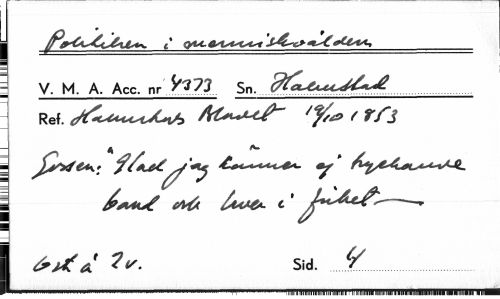 Politiken i menniskovälden
V. M. A. Acc. nr 4373 Sn. Halmstad
Ref. Halmstads Bladet 19/10 1853
Gossen: "Glad jag känner ej tryckande
band och lever i frihet —
6 st à 2 v. Sid. 4